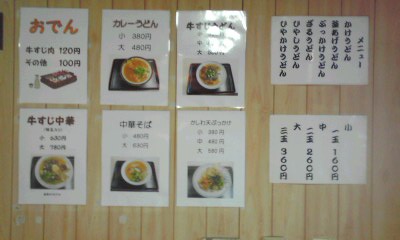 おでん
牛すじ肉 120円
その他 100円
カレーうどん
小 380円
大 480円
牛すじうどん
小
中
大
牛すじ中華
小 630円
大 780円
中華そば
小 480円
大 630円
かしわ天ぶっかけ
小 380円
中 480円
大 580円
メニュー
かけうどん
釜あげうどん
ぶっかけうどん
ざるうどん
ひやしうどん
ひやかけうどん
小 一玉 160円
中 二玉 260円
大 三玉 360円